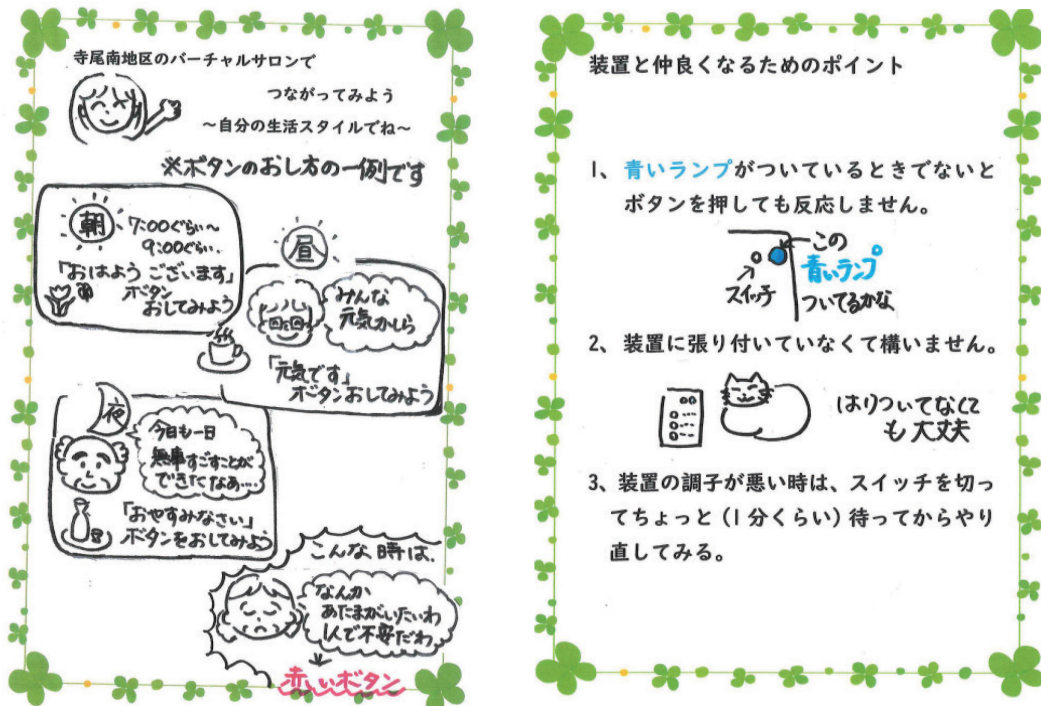 寺尾南地区のバーチャルサロンで
つながってみよう
～自分の生活スタイルでね～
※ボタンのおし方の一例です
朝
7:00ぐらい～
9:00ぐらい.
「おはよう ございます」
ボタン
おしてみよう
昼
みんな
元気かしら
「元気です」
ボタンおしてみよう
夜
今日も一日
無事すごすことが
できたなあ…
「おやすみなさい」
ボタンをおしてみよう
こんな時は、
なんか
あたまがいたいわ
1人で不安だわ
→
赤いボタン
装置と仲良くなるためのポイント
1、青いランプがついているときでないと
ボタンを押しても反応しません。
この
青いランプ
ついてるかな
スイッチ
2、装置に張り付いていなくて構いません。
はりついてなくて
も大丈夫
3、装置の調子が悪い時は、スイッチを切っ
てちょっと（1分くらい）待ってからやり
直してみる。